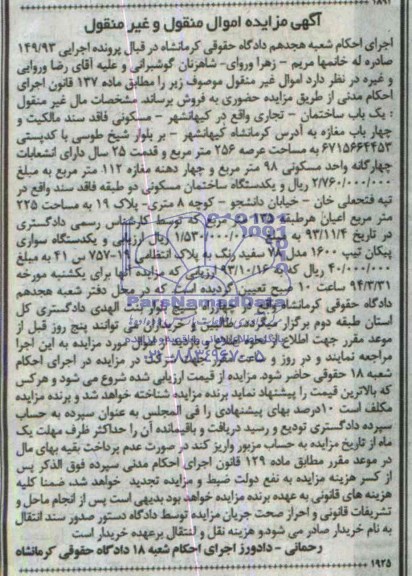 آگهی مزایده اموال منقول و غیر منقول
اجرای احکام شعبه هجدهم دادگاه حقوقی کرمانشاه در قبال پرونده اجرایی ۱۴۹/۹۳
صادره له خانمها مریم - زهرا وروای- شاهزنان گوشبرانی و علیه آقای رضا وروایی
و غیره در نظر دارد اموال غیر منقول موصوف زیر را مطابق ماده ۱۳۷ قانون اجرای
احکام مدنی از طریق مزایده حضوری به فروش برساند. مشخصات مال غیر منقول
: یک باب ساختمان - تجاری واقع در کیهانشهر - مسکونی فاقد سند مالکیت و
چهار باب مغازه به آدرس کرمانشاه کیهانشهر - بر بلوار شیخ طوسی با کدپستی
۶۷۱۵۶۶۴۴۵۳ به مساحت عرصه ۲۵۶ متر مربع و قدمت ۲۵ سال دارای انشعابات
چهارگانه واحد مسکونی ۹۸ متر مربع و چهار دهنه مغازه ۱۱۲ متر مربع به مبلغ
۲/۷۶۰/۰۰۰/۰۰۰ ریال و یکدستگاه ساختمان مسکونی دو طبقه فاقد سند واقع در
تپه فتحعلی خان - خیابان دانشجو - کوچه ۸ متری- پلاک ۱۹ به مساحت ۲۲۵
متر مربع اعیان هرطبقه ۱۳۵ متر مربع که توسط کارشناس رسمی دادگستری
در تاریخ ۹۳/۱۱/۴ به مبلغ ۱/۵۳۰/۰۰۰/۰۰۰ ریال ارزیابی و یکدستگاه سواری
پیکان تیپ ۱۶۰۰ مدل ۷۸ سفید رنگ به پلاک انتظامی ۱۹-۷۵۷ س ۴۱ به مبلغ
۴۰/۰۰۰/۰۰۰ ریال که در ۹۳/۱۰/۱۶ ارزیابی که مزایده آنها برای یکشنبه مورخه
۹۴/۳/۳۱ ساعت ۱۰ صبح تعیین گردیده است که در محل دفتر شعبه هجدهم
دادگاه حقوقی کرمانشاه واقع در چهارراه بسیج بلوار بنت الهدی دادگستری کل
استان طبقه دوم برگزار میگردد. طالبین و خریداران می توانند پنج روز قبل از
موعد مقرر جهت اطلاع از نحوه مزایده و رویت اموال مورد مزایده به این اجرا
مراجعه نمایند و در روز و ساعت مقرر جهت شرکت در مزایده در اجرای احکام
شعبه ۱۸ حقوقی حاضر شود. مزایده از قیمت ارزیابی شده شروع می شود و هرکس
که بالاترین قیمت را پیشنهاد نماید برنده مزایده شناخته خواهد شد و برنده مزایده
مکلف است ۱۰درصد بهای پیشنهادی را فی المجلس به عنوان سپرده به حساب
سپرده دادگستری تودیع و رسید دریافت و باقیمانده آن را حداکثر ظرف مهلت یک
ماه از تاریخ مزایده به حساب مزبور واریز کند در صورت عدم پرداخت بقیه بهای مال
در موعد مقرر مطابق ماده ۱۲۹ قانون اجرای احکام مدنی سپرده فوق الذکر پس
از کسر هزینه مزایده به نفع دولت ضبط و مزایده تجدید خواهد شد، ضمنا کلیه
هزینه های قانونی به عهده برنده مزایده خواهد بود بدیهی است پس از انجام ماحل و
تشریفات قانونی و احراز صحت جریان مزایده توسط دادگاه دستور صدور سند انتقال
به نام خریدار صادر می شود و هزینه نقل و انتقال برعهده خریدار است
رحمانی - دادورز اجرای احکام شعبه ۱۸ دادگاه حقوقی کرمانشاه
۱۹۲۵
ParsNamadData